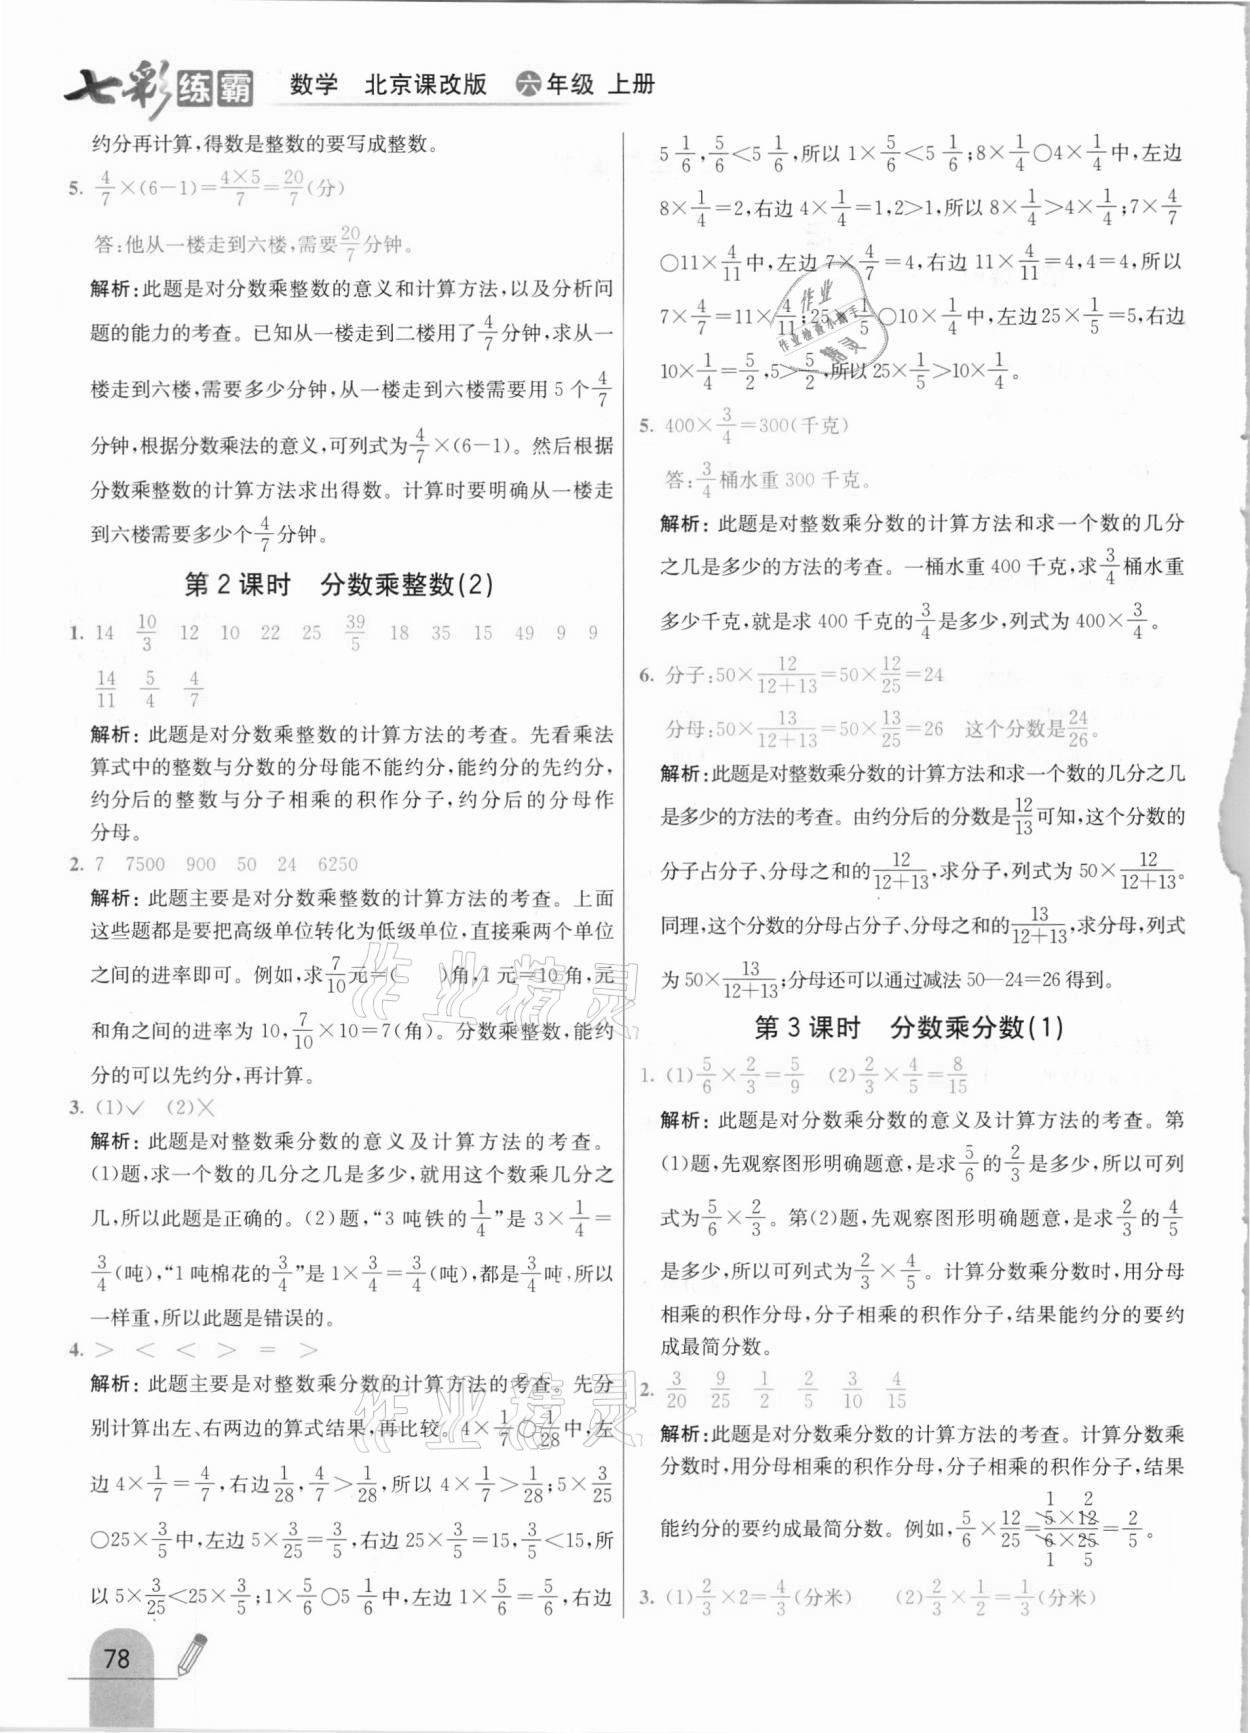 七彩练霸 数学 北京课改版 六年级 上册
约分再计算,得数是整数的要写成整数。
5. 4/7×(6−1)=4×5/7=20/7(分)
答:他从一楼走到六楼,需要20/7分钟。
解析:此题是对分数乘整数的意义和计算方法,以及分析问
题的能力的考查。已知从一楼走到二楼用了4/7分钟,求从一
楼走到六楼,需要多少分钟,从一楼走到六楼需要用 5 个4/7
分钟,根据分数乘法的意义,可列式为4/7×(6−1)。然后根据
分数乘整数的计算方法求出得数。计算时要明确从一楼走
到六楼需要多少个4/7分钟。
第 2 课时 分数乘整数(2)
1. 14 10/3 12 10 22 25 39/5 18 35 15 49 9 9
14/11 5/4 4/7
解析:此题是对分数乘整数的计算方法的考查。先看乘法
算式中的整数与分数的分母能不能约分,能约分的先约分,
约分后的整数与分子相乘的积作分子,约分后的分母作
分母。
2. 7 7500 900 50 24 6250
解析:此题主要是对分数乘整数的计算方法的考查。上面
这些题都是要把高级单位转化为低级单位,直接乘两个单位
之间的进率即可。例如,求7/10元=( )角,1 元=10 角,元
和角之间的进率为 10,7/10×10=7(角)。分数乘整数,能约
分的可以先约分,再计算。
3. (1)✓ (2)×
解析:此题是对整数乘分数的意义及计算方法的考查。
(1)题,求一个数的几分之几是多少,就用这个数乘几分之
几,所以此题是正确的。(2)题,“3 吨铁的1/4”是 3×1/4=
3/4(吨),“1 吨棉花的3/4”是 1×3/4=3/4(吨),都是3/4吨,所以
一样重,所以此题是错误的。
4. > < < > = >
解析:此题主要是对整数乘分数的计算方法的考查。先分
别计算出左、右两边的算式结果,再比较。4×1/7○1/28中,左
边 4×1/7=4/7,右边1/28,4/7>1/28,所以 4×1/7>1/28;5×3/25
○25×3/5中,左边 5×3/25=3/5,右边 25×3/5=15,3/5<15,所
以 5×3/25<25×3/5;1×5/6○5 1/6中,左边 1×5/6=5/6,右边
5 1/6,5/6<5 1/6,所以 1×5/6<5 1/6;8×1/4○4×1/4中,左边
8×1/4=2,右边 4×1/4=1,2>1,所以 8×1/4>4×1/4;7×4/7
○11×4/11中,左边 7×4/7=4,右边 11×4/11=4,4=4,所以
7×4/7=11×4/11;25×1/5○10×1/4中,左边 25×1/5=5,右边
10×1/4=5/2,5>5/2,所以 25×1/5>10×1/4。
5. 400×3/4=300(千克)
答:3/4桶水重 300 千克。
解析:此题是对整数乘分数的计算方法和求一个数的几分
之几是多少的方法的考查。一桶水重 400 千克,求3/4桶水重
多少千克,就是求 400 千克的3/4是多少,列式为 400×3/4。
6. 分子:50×12/12+13=50×12/25=24
分母:50×13/12+13=50×13/25=26 这个分数是24/26。
解析:此题是对整数乘分数的计算方法和求一个数的几分之几
是多少的方法的考查。由约分后的分数是12/13可知,这个分数的
分子占分子、分母之和的12/12+13,求分子,列式为 50×12/12+13。
同理,这个分数的分母占分子、分母之和的13/12+13,求分母,列式
为 50×13/12+13;分母还可以通过减法 50—24=26 得到。
第 3 课时 分数乘分数(1)
1. (1)5/6×2/3=5/9 (2)2/3×4/5=8/15
解析:此题是对分数乘分数的意义及计算方法的考查。第
(1)题,先观察图形明确题意,是求5/6的2/3是多少,所以可列
式为5/6×2/3。第(2)题,先观察图形明确题意,是求2/3的4/5
是多少,所以可列式为2/3×4/5。计算分数乘分数时,用分母
相乘的积作分母,分子相乘的积作分子,结果能约分的要约
成最简分数。
2. 3/20 9/25 1/2 2/5 3/10 4/15
解析:此题是对分数乘分数的计算方法的考查。计算分数乘
分数时,用分母相乘的积作分母,分子相乘的积作分子,结果
1 2
能约分的要约成最简分数。例如,5/6×12/25=5×12/6×25=2/5。
1 5
3. (1)2/3×2=4/3(分米) (2)2/3×1/2=1/3(分米)
78
作业
作业检查小帮手
精灵
作业精灵
作业精灵